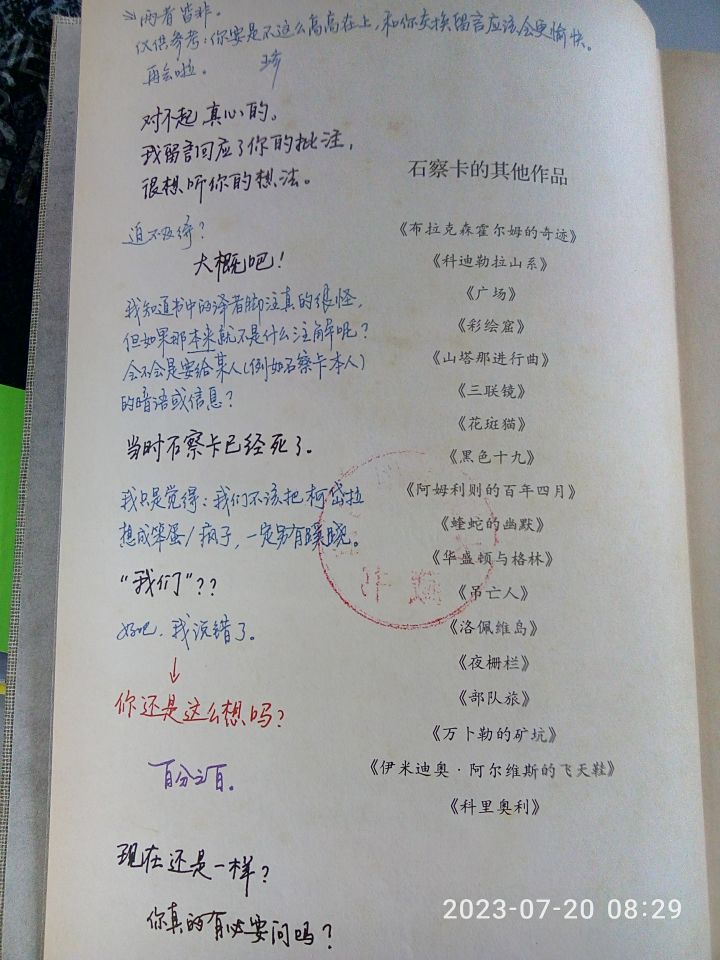 →两者皆非。
仅供参考:你要是不这么高高在上,和你交换留言应该会更愉快。
再会啦。
对不起,真心的。
我留言回应了你的批注,
很想听你的想法。
迫不及待?
大概吧!
我知道书中的译者脚注真的很怪,
但如果那本来就不是什么注解呢?
会不会是要给某人(例如石察卡本人)
的暗语或信息?
当时石察卡已经死了。
我只是觉得:我们不该把柯岱拉
想成笨蛋/疯子,一定另有蹊跷。
“我们”??
好吧,我说错了。
↓
你还是这么想吗?
百分之百。
现在还是一样?
你真的有必要问吗?
石察卡的其他作品
《布拉克森霍尔姆的奇迹》
《科迪勒拉山系》
《广场》
《彩绘窟》
《山塔那进行曲》
《三联镜》
《花斑猫》
《黑色十九》
《阿姆利则的百年四月》
《蝰蛇的幽默》
《华盛顿与格林》
《吊亡人》
《洛佩维岛》
《夜栅栏》
《部队旅》
《万卜勒的矿坑》
《伊米迪奥·阿尔维斯的飞天鞋》
《科里奥利》
2023-07-20 08:29